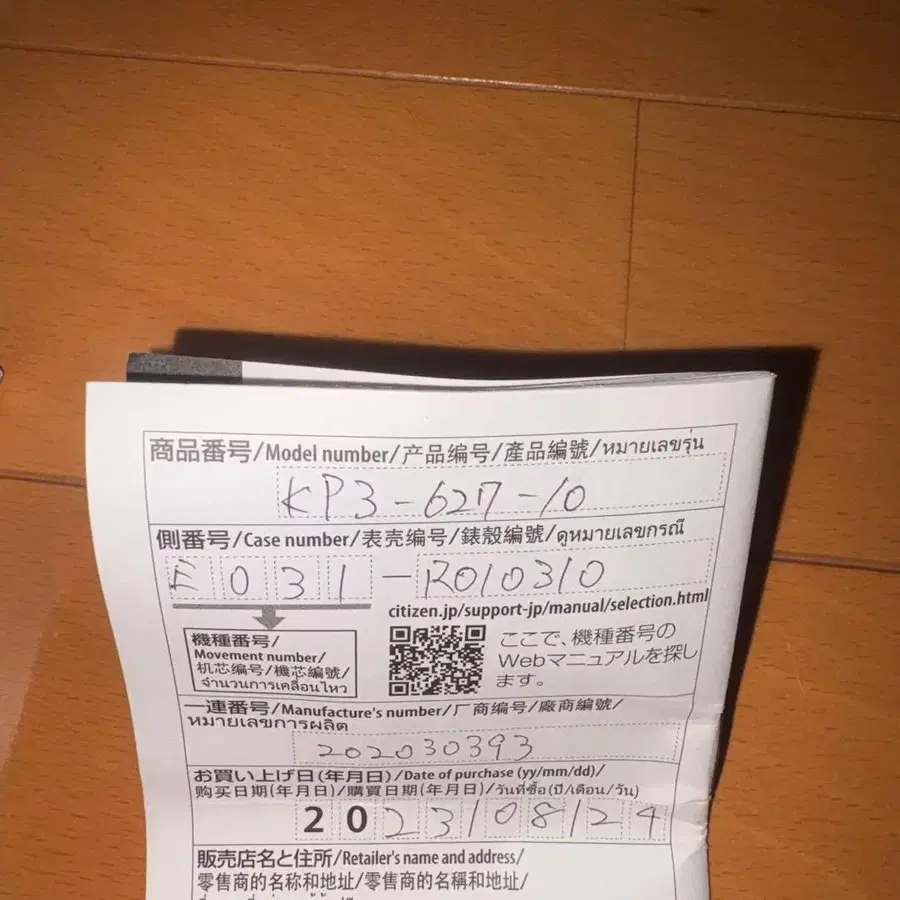 商品番号/Model number/产品编号/產品編號/หมายเลขรุ่น
KP3-627-10
側番号/Case number/表壳编号/錶殼編號/ดูหมายเลขกรณี
E031-R010310
citizen.jp/support-jp/manual/selection.html
機種番号/
Movement number/
机芯编号/機芯編號/
จำนวนการเคลื่อนไหว
ここで、機種番号の
Webマニュアルを探し
ます。
一連番号/Manufacture's number/厂商编号/廠商編號/
หมายเลขการผลิต
202030393
お買い上げ日(年月日)/Date of purchase (yy/mm/dd)/
购买日期(年月日)/購買日期(年月日)/วันที่ซื้อ(ปี/เดือน/วัน)
2023/08/24
販売店名と住所/Retailer's name and address/
零售商的名称和地址/零售商的名稱和地址/